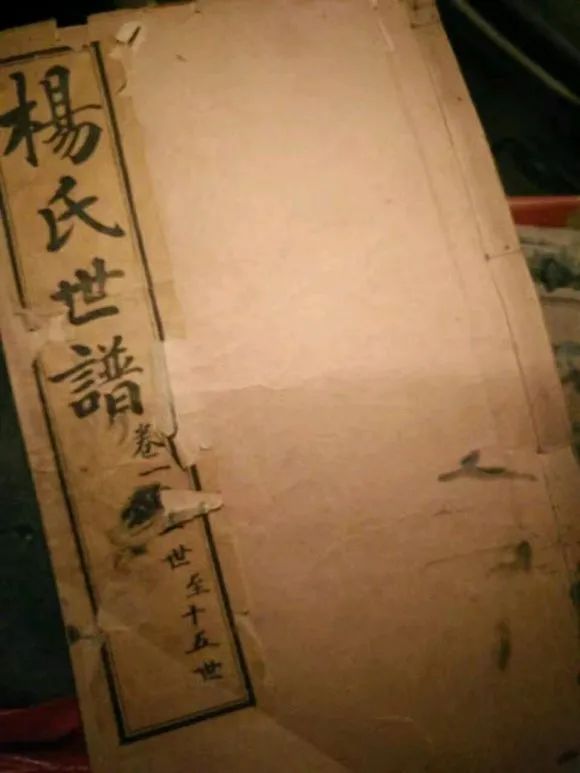 楊氏世譜
卷一
世至十五世